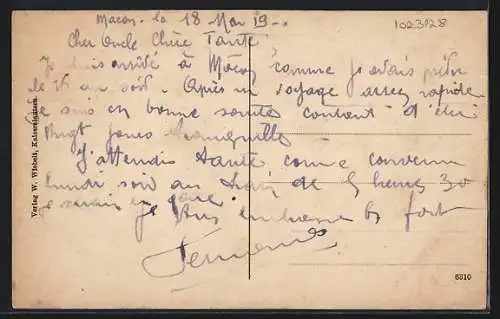 Macon. le 18 Mai 19
1023128
Cher Oncle Chère Tante
Je suis arrivé à Macon comme je avais
le 16 au soir. Après un voyage assez rapide
Je suis en bonne santé content d'être
Vingt jours tranquille
J'attendis tante comme convenu
lundi soir au train de 5 heures 30
je serais en gare.
Je vous embrasse bs fort
Verlag W. Wiebelt, Kaiserslautern.
6810